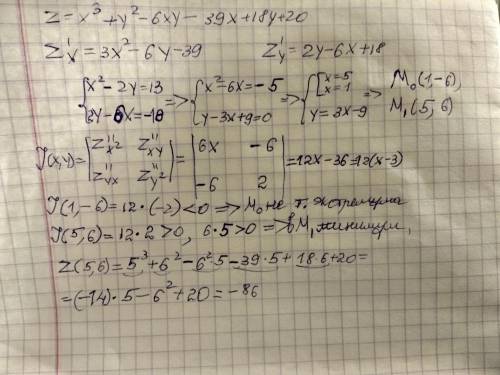 Z = x³ + y² - 6xy - 39x + 18y + 20
Z'x = 3x² - 6y - 39    Z'y = 2y - 6x + 18
{x² - 2y = 13  2y - 6x = -18 => {x² - 6x = -5  y - 3x + 9 = 0 => {[x = 5  x = 1  y = 3x - 9 => M₀(1, -6), M₁(5, 6)
I(x,y) = |Z''x²  Z''xy  Z''yx  Z''y²| = |6x  -6  -6  2| = 12x - 36 = 12(x - 3)
I(1, -6) = 12 · (-2) < 0 => M₀ не т. экстремума
I(5, 6) = 12 · 2 > 0, 6 · 5 > 0 => в M₁ минимум,
Z(5, 6) = 5³ + 6² - 6² · 5 - 39 · 5 + 18 · 6 + 20 =
= (-14) · 5 - 6² + 20 = -86